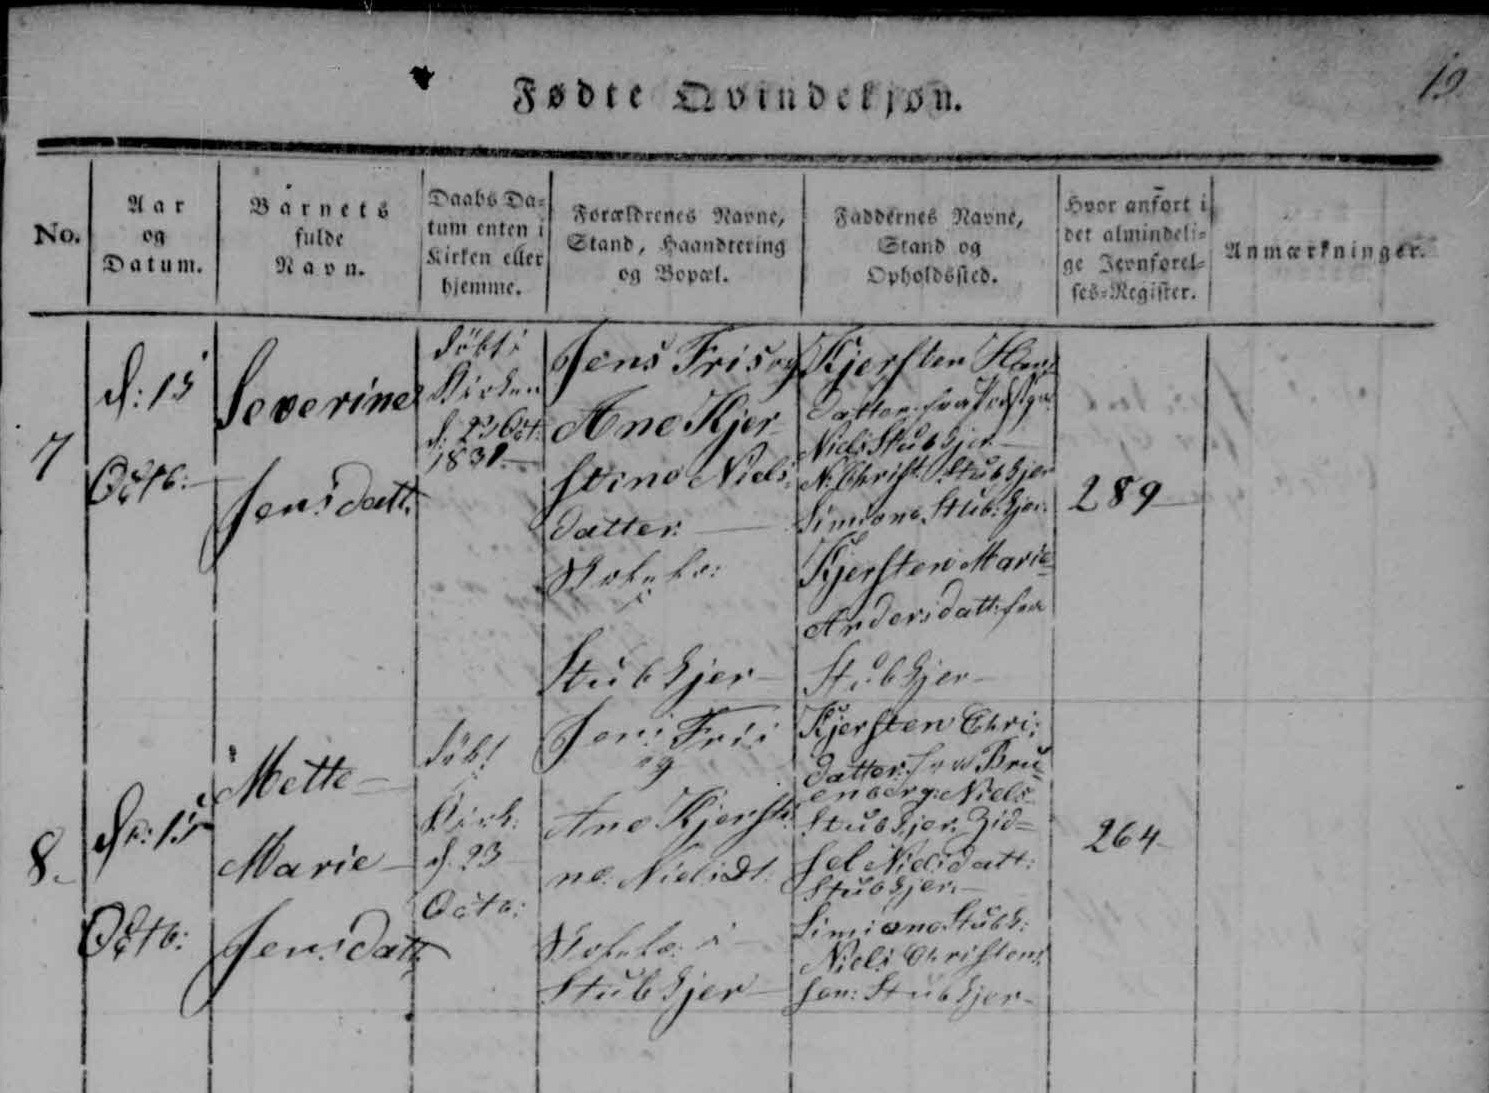 19
Fødte Qvindekjøn.
No.
Aar
og
Datum.
Barnets
fulde
Navn.
Daabs Da-
tum enten i
Kirken eller
hjemme.
Forældrenes Navne,
Stand, Haandtering
og Bopæl.
Faddernes Navne,
Stand og
Opholdssted.
Hvor anført i
det almindeli-
ge Jevnførel-
ses-Register.
Anmærkninger.
7
d: 15
Octb:
Severine
Jensdatt:
døbt i
Kirken
d: 23 Oct:
1831.
Jens Friis og
Ane Kjer-
stine Niels
datter
i
Stubkjer
Kjersten
datter fra
Niels Stubkjer
N: Christ: Stubkjer
Simione Stubkjer
Kjersten Marie
Andersdatt: fra
Stubkjer
289
8.
d: 15
Octb:
Mette
Marie
Jensdatt:
døbt
Kirk:
d. 23
Octb:
Jens Friis
og
Ane Kjersti-
ne Nielsdt:
i
Stubkjer
Kjersten Chri:
datter fra Bru-
enberg: Niels
Stubkjer Zid-
sel Nielsdatt:
Stubkjer
Simione Stubk:
Niels Christen
sen: Stubkjer
264